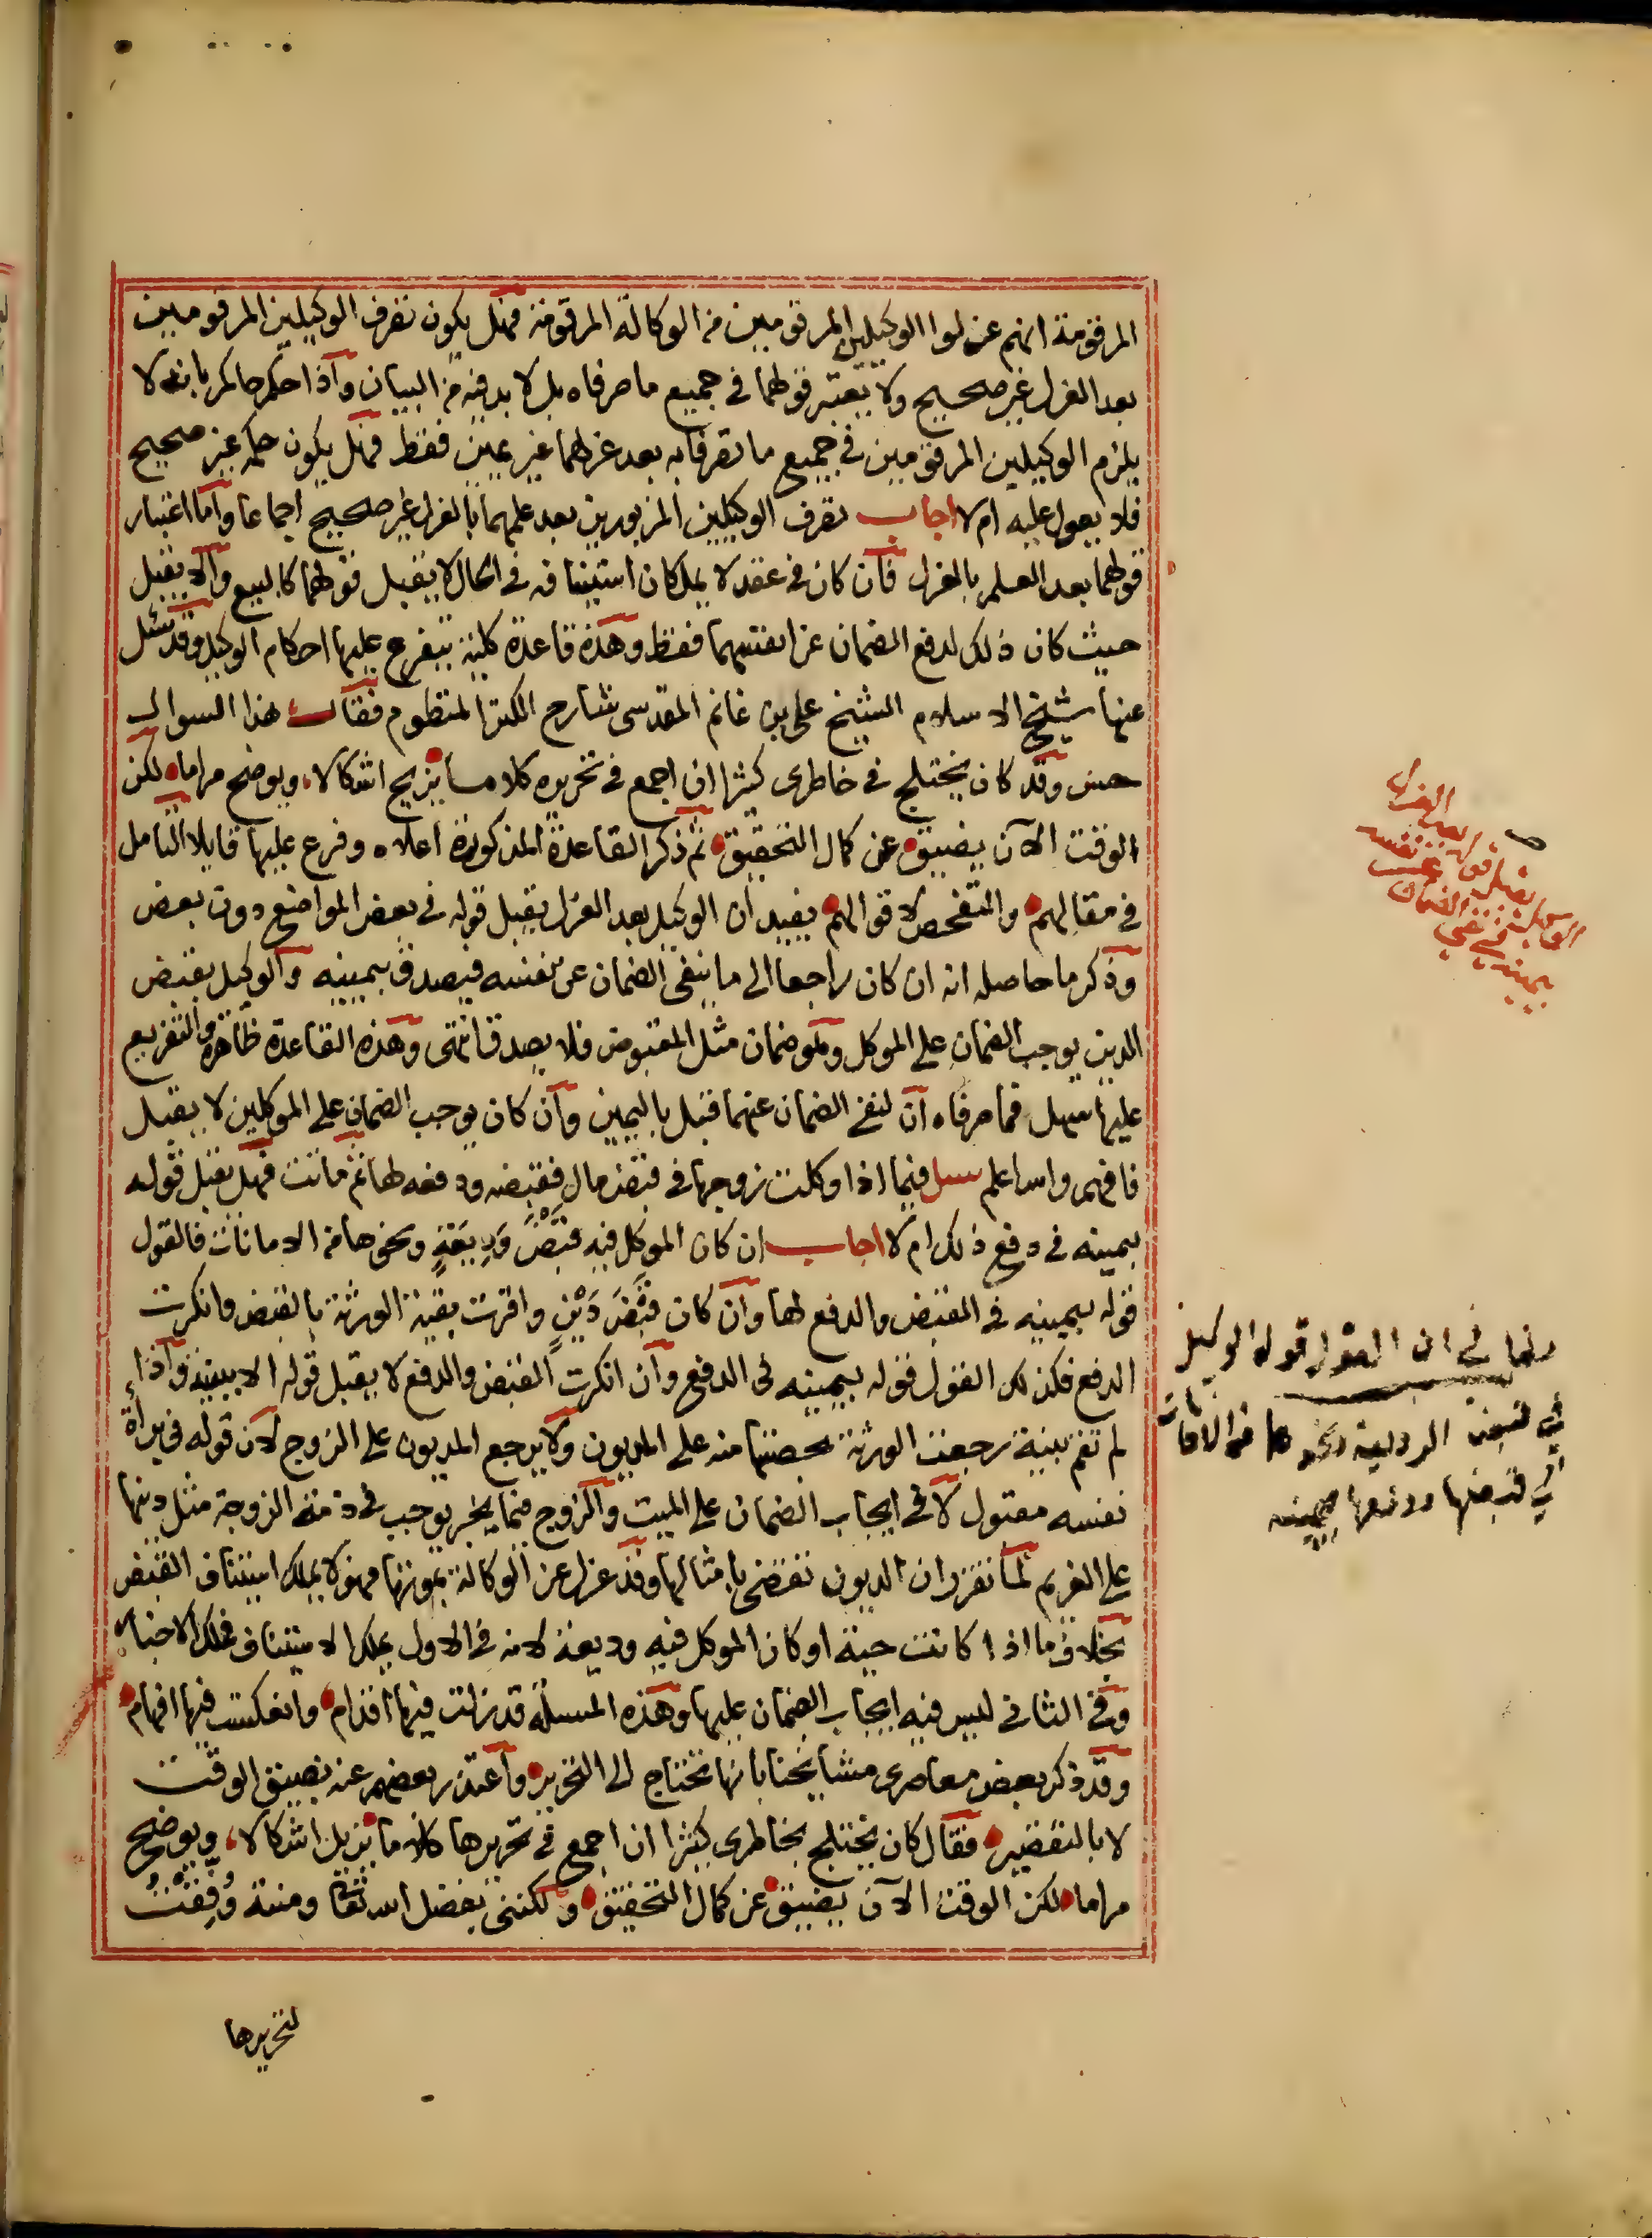 المرقومة انهم عزلوا الوكيلين المرقومين من الوكالة المرقومة فهل يكون تصرف الوكيلين المرقومين
بعد العزل غير صحيح ولا يعتبر قولهما في جميع ما صرفاه بل لا بد فيه من البيان واذا حكم حاكم بانه لا
يلزم الوكيلين المرقومين في جميع ما تصرفا به بعد عزلهما غير يمين فقط فهل يكون حكمه غير صحيح
فلا يعول عليه ام لا اجاب تصرف الوكيلين المزبورين بعد علمهما بالعزل غير صحيح اجماعا واما اعتبار
قولهما بعد العلم بالعزل فان كان في عقد لا يملكان استينافه في الحال لا يقبل قولهما كالبيع والا يقبل
حيث كان ذلك لدفع الضمان عن انفسهما فقط وهذه قاعدة كلية يتفرع عليها احكام الوكيل وقد سئل
عنها شيخ الاسلام الشيخ علي بن غانم المقدسي شارح الكنز المنظوم فقال هذا السوال
حسن وقد كان يختلج في خاطري كثيرا ان اجمع في تحريره كلاما يزيح اشكالا ويوضح مراما لكن
الوقت الآن يضيق عن كمال التحقيق ثم ذكر القاعدة المذكورة اعلاه وفرع عليها قايلا التامل
في مقالهم والتفحص لاقوالهم يفيد ان الوكيل بعد العزل يقبل قوله في بعض المواضع دون بعض
وذكر ما حاصله انه ان كان راجعا الى ما ينفي الضمان عن نفسه فيصدق بيمينه والوكيل بقبض
الدين يوجب الضمان على الموكل وهو ضمان مثل المقبوض فلا يصدق انتهى وهذه القاعدة ظاهرة والتفريع
عليها سهل فما صرفاه ان لنفي الضمان عنهما قبل باليمين وان كان يوجب الضمان على الموكلين لا يقبل
فافهم والله اعلم سئل فيما اذا وكلت زوجها في قبض مال فقبضه ودفعه لها ثم ماتت فهل يقبل قوله
بيمينه في دفع ذلك ام لا اجاب ان كان الموكل فيه قبض وديعة ونحوها من الامانات فالقول
قوله بيمينه في القبض والدفع لها وان كان قبض دين واقرت بقية الورثة بالقبض وانكرت
الدفع فكذلك القول قوله بيمينه في الدفع وان انكرت القبض والدفع لا يقبل قوله الا ببينة واذا
لم تقم بينة رجعت الورثة بحصتها منه على المديون ولا يرجع المديون على الزوج لان قوله في براءة
نفسه مقبول لا في ايجاب الضمان على الميت والزوج فيما يخبر يوجب في ذمة الزوجة مثل دينها
على الغريم لما تقرر ان الديون تقضى بامثالها وقد عزل عن الوكالة بموتها فهو لا يملك استيناف القبض
بخلاف ما اذا كانت حية او كان الموكل فيه وديعة لانه في الاول يملك الاستيناف فملك الاخبار
وفي الثاني ليس فيه ايجاب الضمان عليها وهذه المسئلة قد زلت فيها اقدام وانعكست فيها افهام
وقد ذكر بعض معاصري مشايخنا بانها تحتاج الى التحرير واعتذر بعضهم عنه بضيق الوقت
لا بالتقصير فقال كان يختلج بخاطري كثيرا ان اجمع في تحريرها كلاما يزيل اشكالا ويوضح
مراما لكن الوقت الآن يضيق عن كمال التحقيق ولكنني بفضل الله تعالى ومنته وُفِّقْتُ
لتحريرها
الوكيل يقبل قوله بعد العزل
بيمينه في نفي الضمان عن نفسه
مطلب في ان القول قول الوكيل
في قبض الوديعة ونحوها من الامانات
في قبضها ودفعها بيمينه